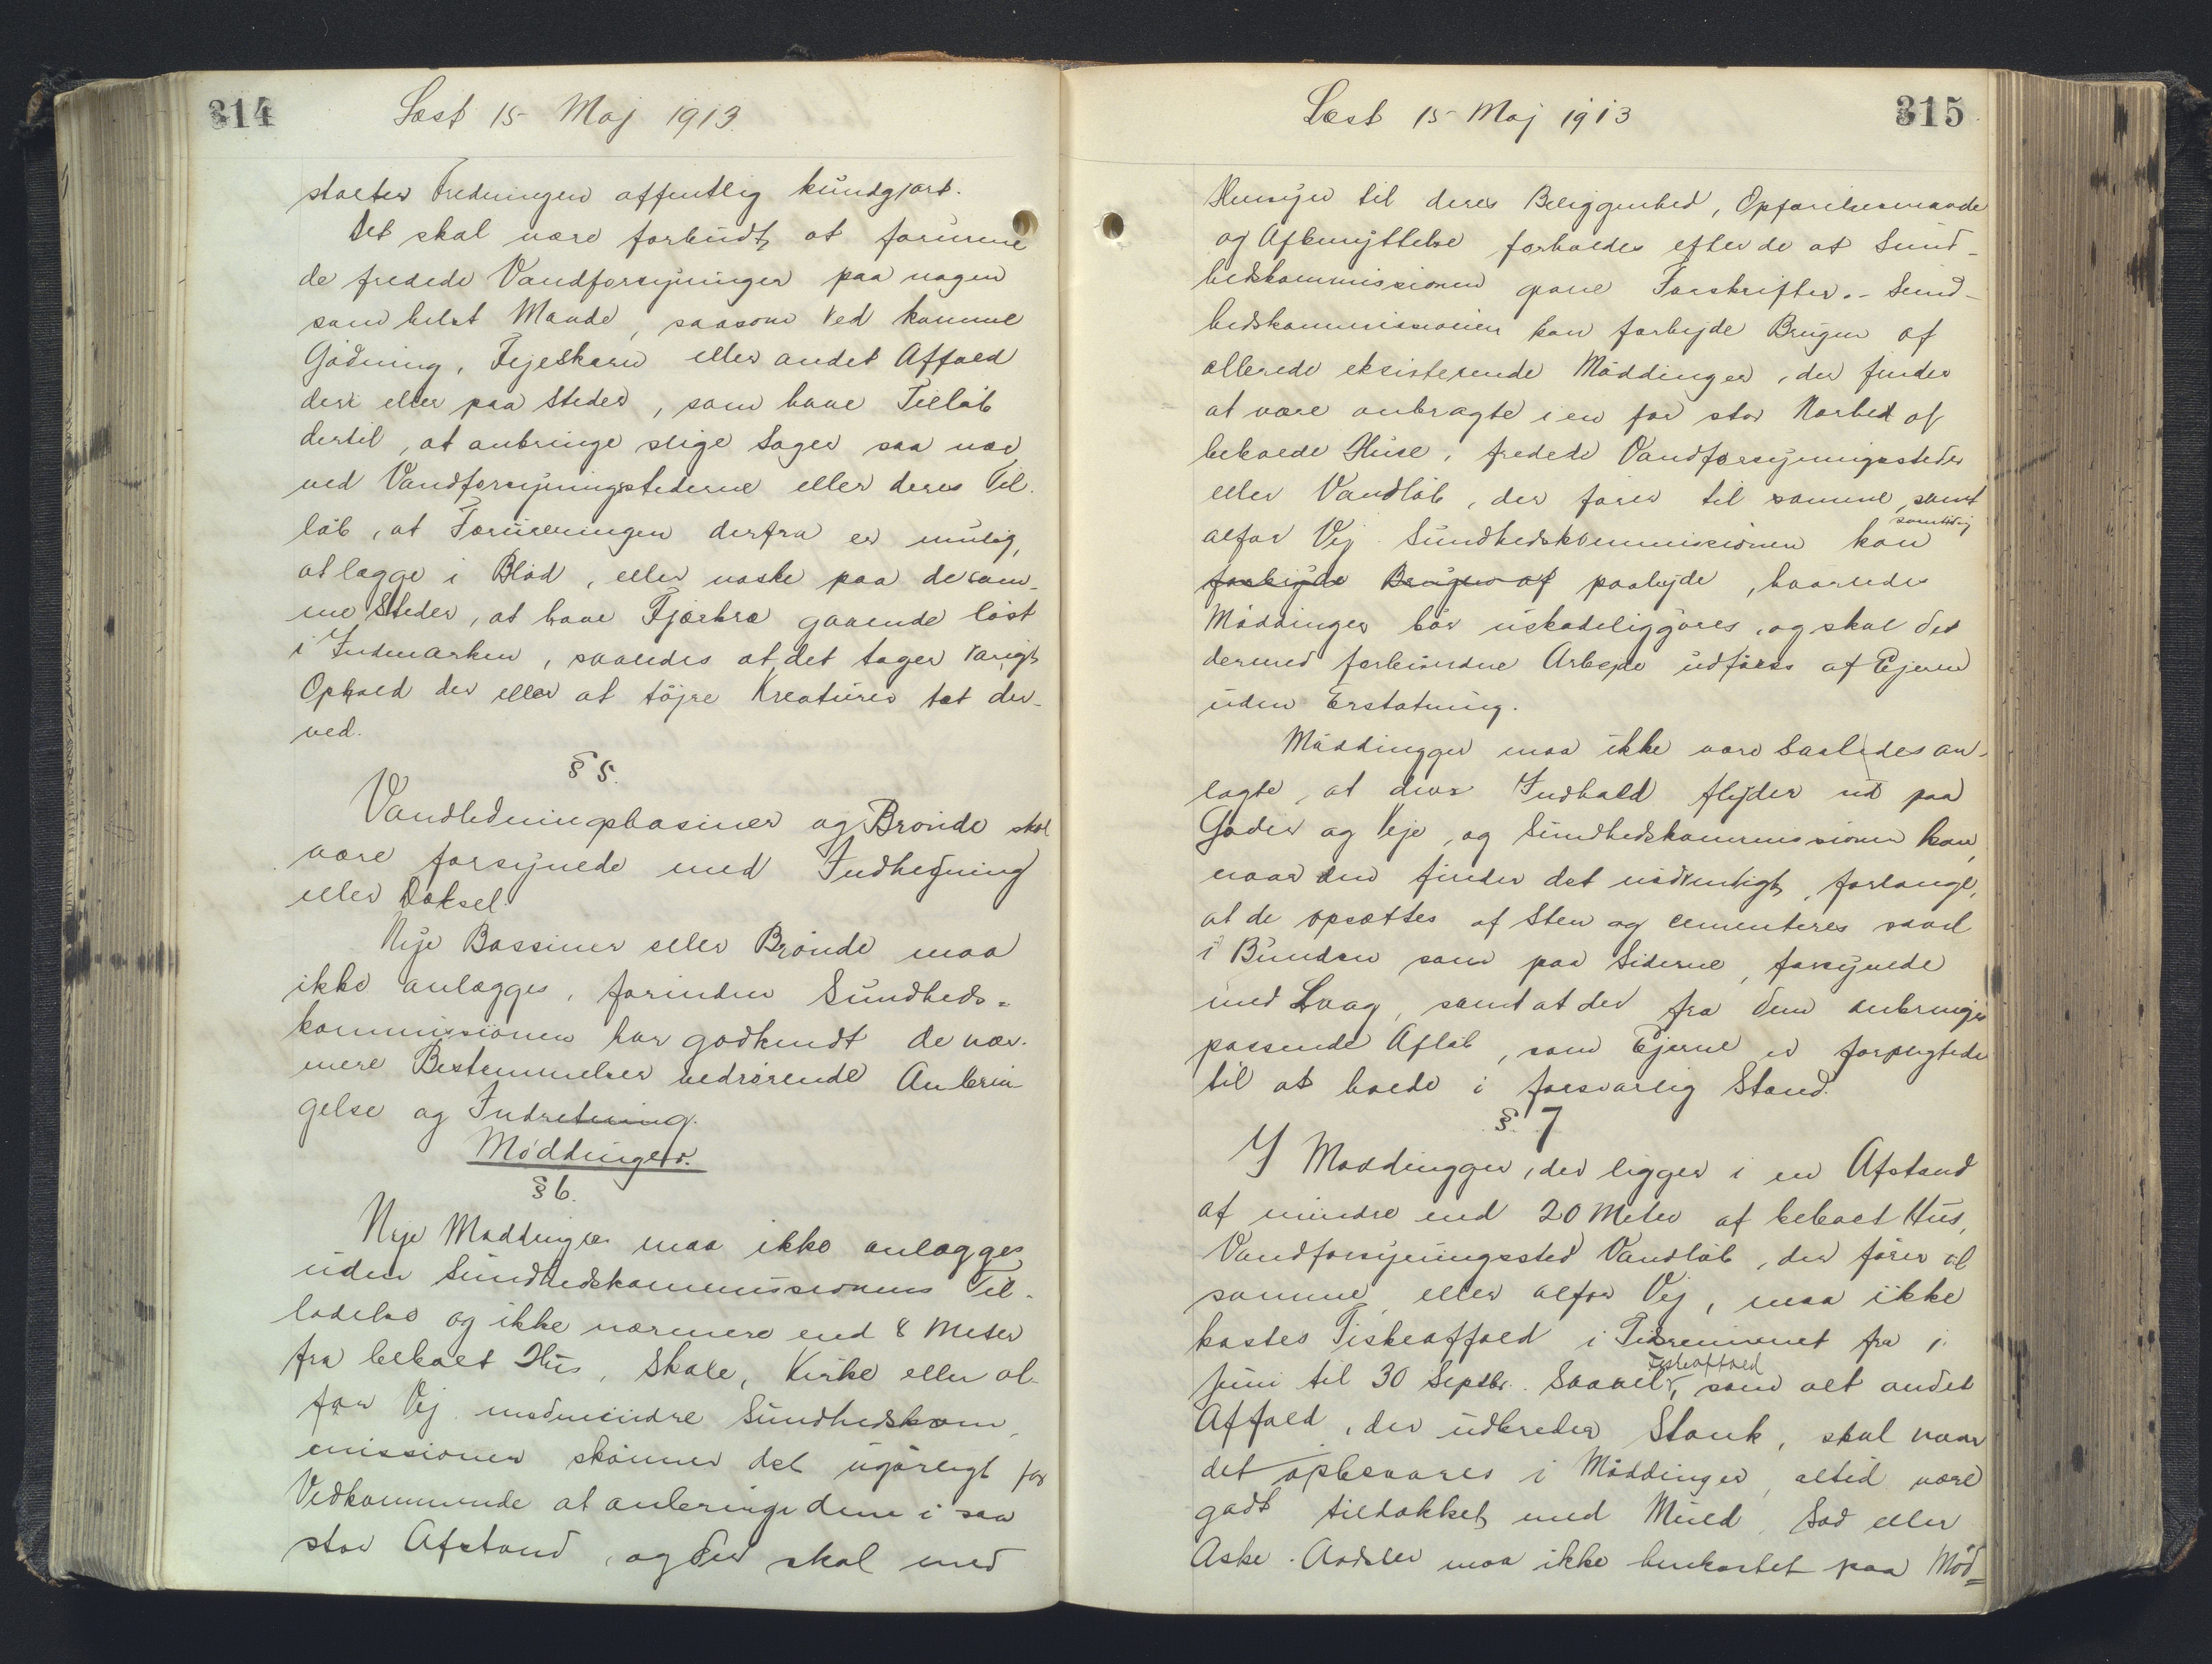 314
Læst 15 Maj 1913
stætes Fredningen offentlig kundgjort.
Det skal være forbudt, at forurene
de fredede Vandforsyninger paa nogen
som helst Maade, saasom ved komme
Gødning, Fejeskarn eller andet Affald
deri eller paa Steder, som have Tilløb
dertil, at anbringe slige Sager saa nær
ved Vandforsyningstederne eller deres Til.
løb, at Forureningen derfra er mulig,
at lægge i Blød, eller vaske paa de sam-
me Steder, at have Fjærkræ gaaende løst
i Indmarken, saaledes at det tager varigt
Ophold der eller at tøjre Kreaturer tæt der-
ved.
§ 5.
Vandledningsbasiner og Brønde skal
være forsynede med Indhegning
eller Dæksel.
Nye Bassiner eller Brønde maa
ikke anlægges, forinden Sundheds=
kommissionen har godkendt de nær.
mere Bestemmelser vedrørende Anbrin
gelse og Indretning.
Møddinger.
§ 6.
Nye Møddinger maa ikke anlægges
uden Sundhedskommissionens Til-
ladelse og ikke nærmere end 8 Meter
fra beboet Hus, Skole, Kirke eller al-
far Vej medmindre Sundhedskom
missionen skønner det ugørligt for
Vedkommende at anbringe dem i saa
stor Afstand, og der skal med
315
Læst 15 Maj 1913
Hensyn til deres Beliggenhed, Opførelsesmaade
og Afbenyttelse forholdes efter de af Sund-
hedskommissionen givne Forskrifter. - Sund-
hedskommissionen kan forbyde Brugen af
allerede eksisterende Møddinger, der findes
at være anbragte i en for stor Nærhed af
beboede Huse, fredede Vandforsyningssteder
eller Vandløb, der fører til samme, samt
alfar Vej. Sundhedskommissionen kan samtidig
forbyde Brugen af paabyde, hvorledes
Møddinger bør uskadeliggøres, og skal det
dermed forbundne Arbejde udføres af Ejeren
uden Erstatning.
Møddingger maa ikke være saaledes an-
lagte, at deres Indhold flyder ud paa
Gader og Veje, og Sundhedskommissionen kan,
naar den finder det nødvendigt, forlange,
at de opsættes af Sten og cementeres saavel
i Bunden som paa Siderne, forsynede
med Laag, samt at der fra dem anbringes
passende Afløb, som Ejerne er forpligtede
til at holde i forsvarlig Stand.
§. 7
I Møddingger, der ligger i en Afstand
af mindre end 20 Meter af beboet Hus,
Vandforsyningssted Vandløb, der fører til
samme, eller alfar Vej, maa ikke
kastes Fiskeaffald i Tidsrummet fra 1.
Juni til 30 Septbr. Saavel Fiskeaffald, som alt andet
Affald, der udbreder Stank, skal naar
det opbevares i Møddinger, altid være
godt tildækket med Muld, Sod eller
Aske. Aadsler maa ikke henkastet paa Mød=